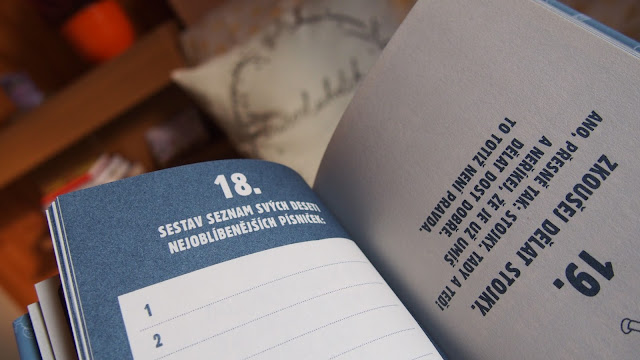 18.
SESTAV SEZNAM SVÝCH DESETI
NEJOBLÍBENĚJŠÍCH PÍSNIČEK:
1
2
19.
ZKOUŠEJ DĚLAT STOJKY.
ANO, PŘESNĚ TAK. STOJKY. TADY A TEĎ!
A NEŘÍKEJ, ŽE JE UŽ UMÍŠ
DĚLAT DOST DOBŘE.
TO TOTIŽ NENÍ PRAVDA.